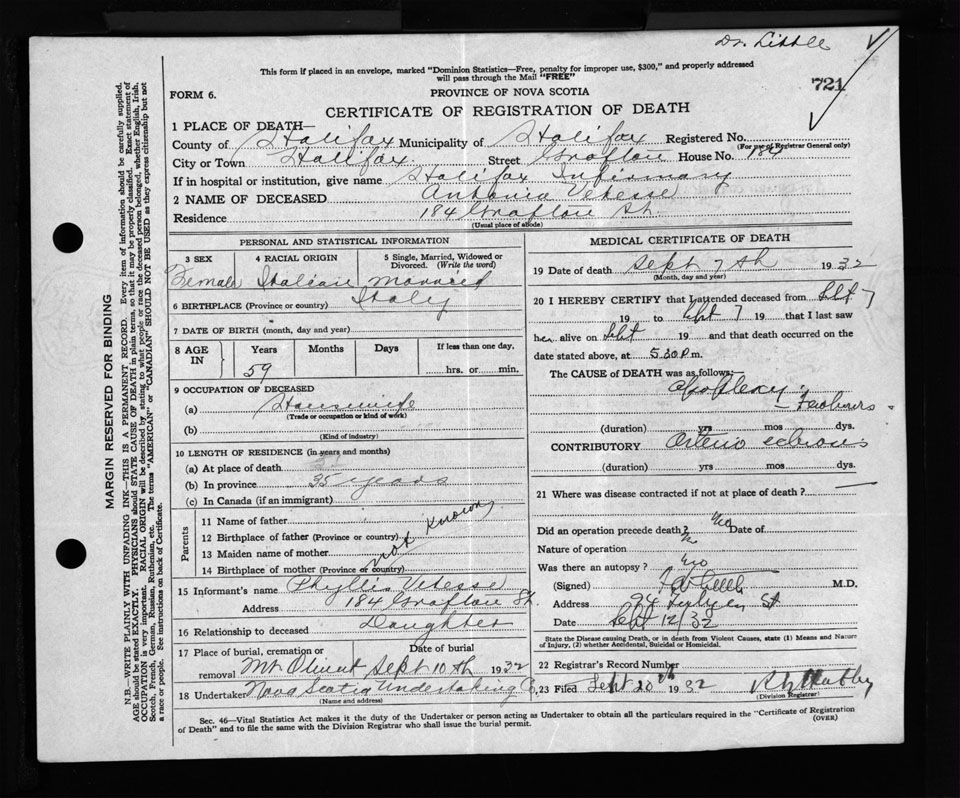 Dr Little
This form if placed in an envelope, marked "Dominion Statistics—Free, penalty for improper use, $300," and properly addressed
will pass through the Mail "FREE"
721
FORM 6.
PROVINCE OF NOVA SCOTIA
CERTIFICATE OF REGISTRATION OF DEATH
1 PLACE OF DEATH—
County of Halifax Municipality of Halifax Registered No.
(For use of Registrar General only)
City or Town Halifax. Street Grafton House No. 184
If in hospital or institution, give name Halifax Infirmary
2 NAME OF DECEASED Antonia Vetesse
Residence 184 Grafton St.
(Usual place of abode)
PERSONAL AND STATISTICAL INFORMATION
3 SEX 4 RACIAL ORIGIN 5 Single, Married, Widowed or Divorced. (Write the word)
Female Italian Married
6 BIRTHPLACE (Province or country) Italy
7 DATE OF BIRTH (month, day and year)
8 AGE IN Years Months Days If less than one day.
59 hrs. or min.
9 OCCUPATION OF DECEASED
(a) Housewife
(Trade or occupation or kind of work)
(b)
(Kind of industry)
10 LENGTH OF RESIDENCE (in years and months)
(a) At place of death
(b) In province 35 years
(c) In Canada (if an immigrant)
Parents
11 Name of father
12 Birthplace of father (Province or country)
13 Maiden name of mother
14 Birthplace of mother (Province or country)
Not Known
15 Informant's name Phyllis Vetesse
Address 184 Grafton St.
16 Relationship to deceased Daughter
17 Place of burial, cremation or removal Date of burial
Mt Olivet Sept 10th 1932
18 Undertaker Nova Scotia Undertaking Co.
(Name and address)
MEDICAL CERTIFICATE OF DEATH
19 Date of death Sept 7th 1932
(Month, day and year)
20 I HEREBY CERTIFY that I attended deceased from Sept 7
19 to Sept 7 19 that I last saw
her alive on Sept 19 and that death occurred on the
date stated above, at 5.30 p.m.
The CAUSE of DEATH was as follows:
Apoplexy
(duration) yrs mos dys.
CONTRIBUTORY Arterio
(duration) yrs mos dys.
21 Where was disease contracted if not at place of death?
Did an operation precede death? no Date of
Nature of operation
Was there an autopsy? no
(Signed) M.D.
Address St
Date Sept 12/32
State the Disease causing Death, or in death from Violent Causes, state (1) Means and Nature
of Injury, (2) whether Accidental, Suicidal or Homicidal.
22 Registrar's Record Number
23 Filed Sept 20th 1932
(Division Registrar)
Sec. 46—Vital Statistics Act makes it the duty of the Undertaker or person acting as Undertaker to obtain all the particulars required in the "Certificate of Registration
of Death" and to file the same with the Division Registrar who shall issue the burial permit.
(OVER)
MARGIN RESERVED FOR BINDING
N.B.—WRITE PLAINLY WITH UNFADING INK—THIS IS A PERMANENT RECORD. Every item of information should be carefully supplied.
AGE should be stated EXACTLY. PHYSICIANS should STATE CAUSE OF DEATH in plain terms, so that it may be properly classified. Exact statement of
OCCUPATION is very important. RACIAL ORIGIN will be described by stating to what people or race the deceased person belonged, whether English, Irish,
Scotch, French, German, Russian, Ruthenian, etc. The terms "AMERICAN" or "CANADIAN" SHOULD NOT BE USED as they express citizenship but not
a race or people. See instructions on back of Certificate.